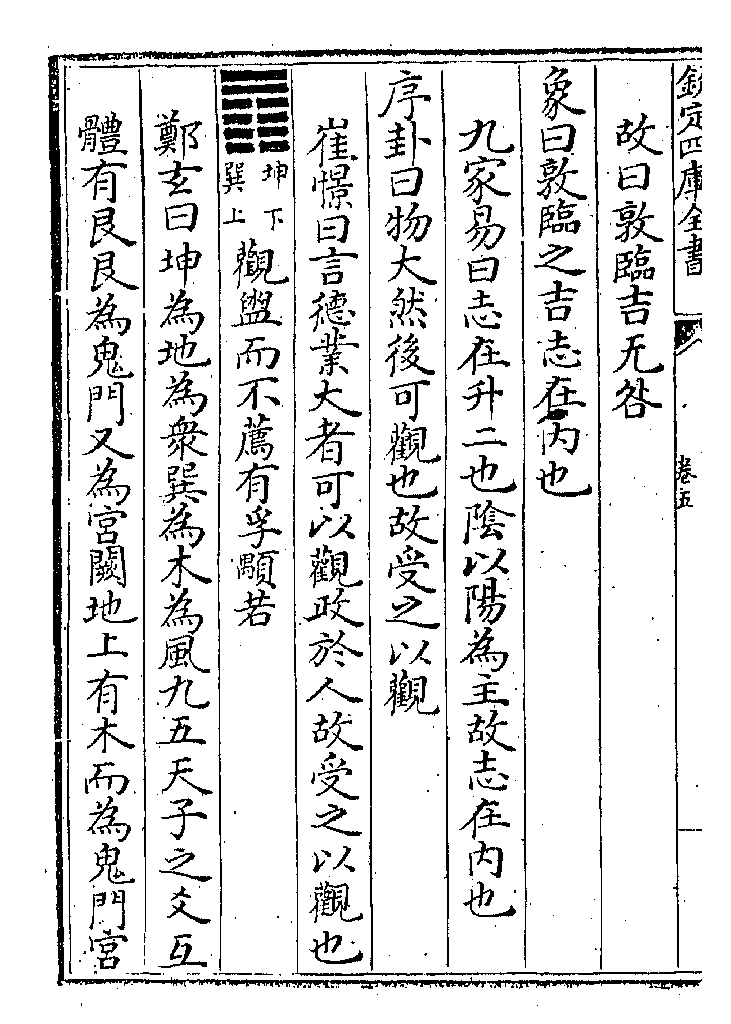 欽定四庫全書
卷五
故曰敦臨吉无咎
象曰敦臨之吉志在内也
九家易曰志在升二也陰以陽為主故志在内也
序卦曰物大然後可觀也故受之以觀
崔憬曰言德業大者可以觀政於人故受之以觀也
坤下
巽上
觀盥而不薦有孚顒若
鄭玄曰坤為地為衆巽為木為風九五天子之爻互
體有艮艮為鬼門又為宫闕地上有木而為鬼門宫